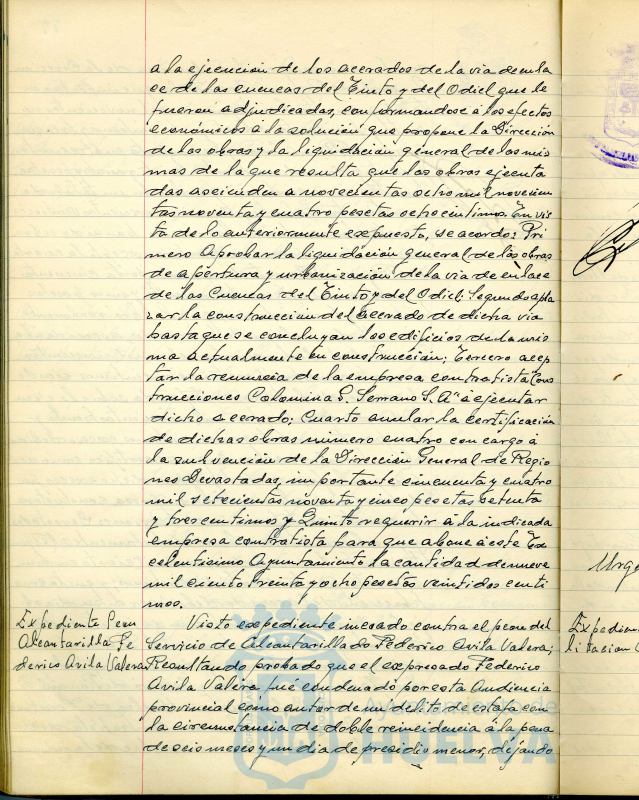 a la ejecución de los acerados de la via de enla
ce de las cuencas del Tinto y del Odiel que le
fueron adjudicadas, conformandose a los efectos
económicos a la solución que propone la Dirección
de las obras y la liquidación general de las mis
mas de la que resulta que las obras ejecuta
das ascienden a novecientas ocho mil novecien
tas noventa y cuatro pesetas ocho centimos. En vis
ta de lo anteriormente expuesto, se acordo: Pri
mero Aprobar la liquidación general de las obras
de apertura y urbanización de la via de enlace
de las Cuencas del Tinto y del Odiel: Segundo apla
zar la construcción del acerado de dicha via
hasta que se concluyan los edificios de la mis
ma actualmente en construcción; Tercero acep
tar la renuncia de la empresa contratista Cons
trucciones Colomina G. Serrano S. Aª a ejecutar
dicho acerado; Cuarto anular la certificación
de dichas obras número cuatro con cargo á
la subvención de la Dirección General de Regio
nes Devastadas, importante cincuenta y cuatro
mil setecientas noventa y cinco pesetas setenta
y tres centimos y Quinto requerir á la indicada
empresa contratista para que abone á este Ex
celentisimo Ayuntamiento la cantidad de nueve
mil ciento treinta y ocho pesetas veintidos centi
mos.
Expediente Peon
Alcantarilla Fe
derico Avila Valera
Visto expediente incoado contra el peon del
Servicio de Alcantarillado Federico Avila Valera;
Resultando probado que el expresado Federico
Avila Valera fué condenado por esta Audiencia
provincial como autor de un delito de estafa con
la circunstancia de doble reincidencia á la pena
de seis meses y un dia de presidio menor, dejando
HUELVA
Urge
Expedien